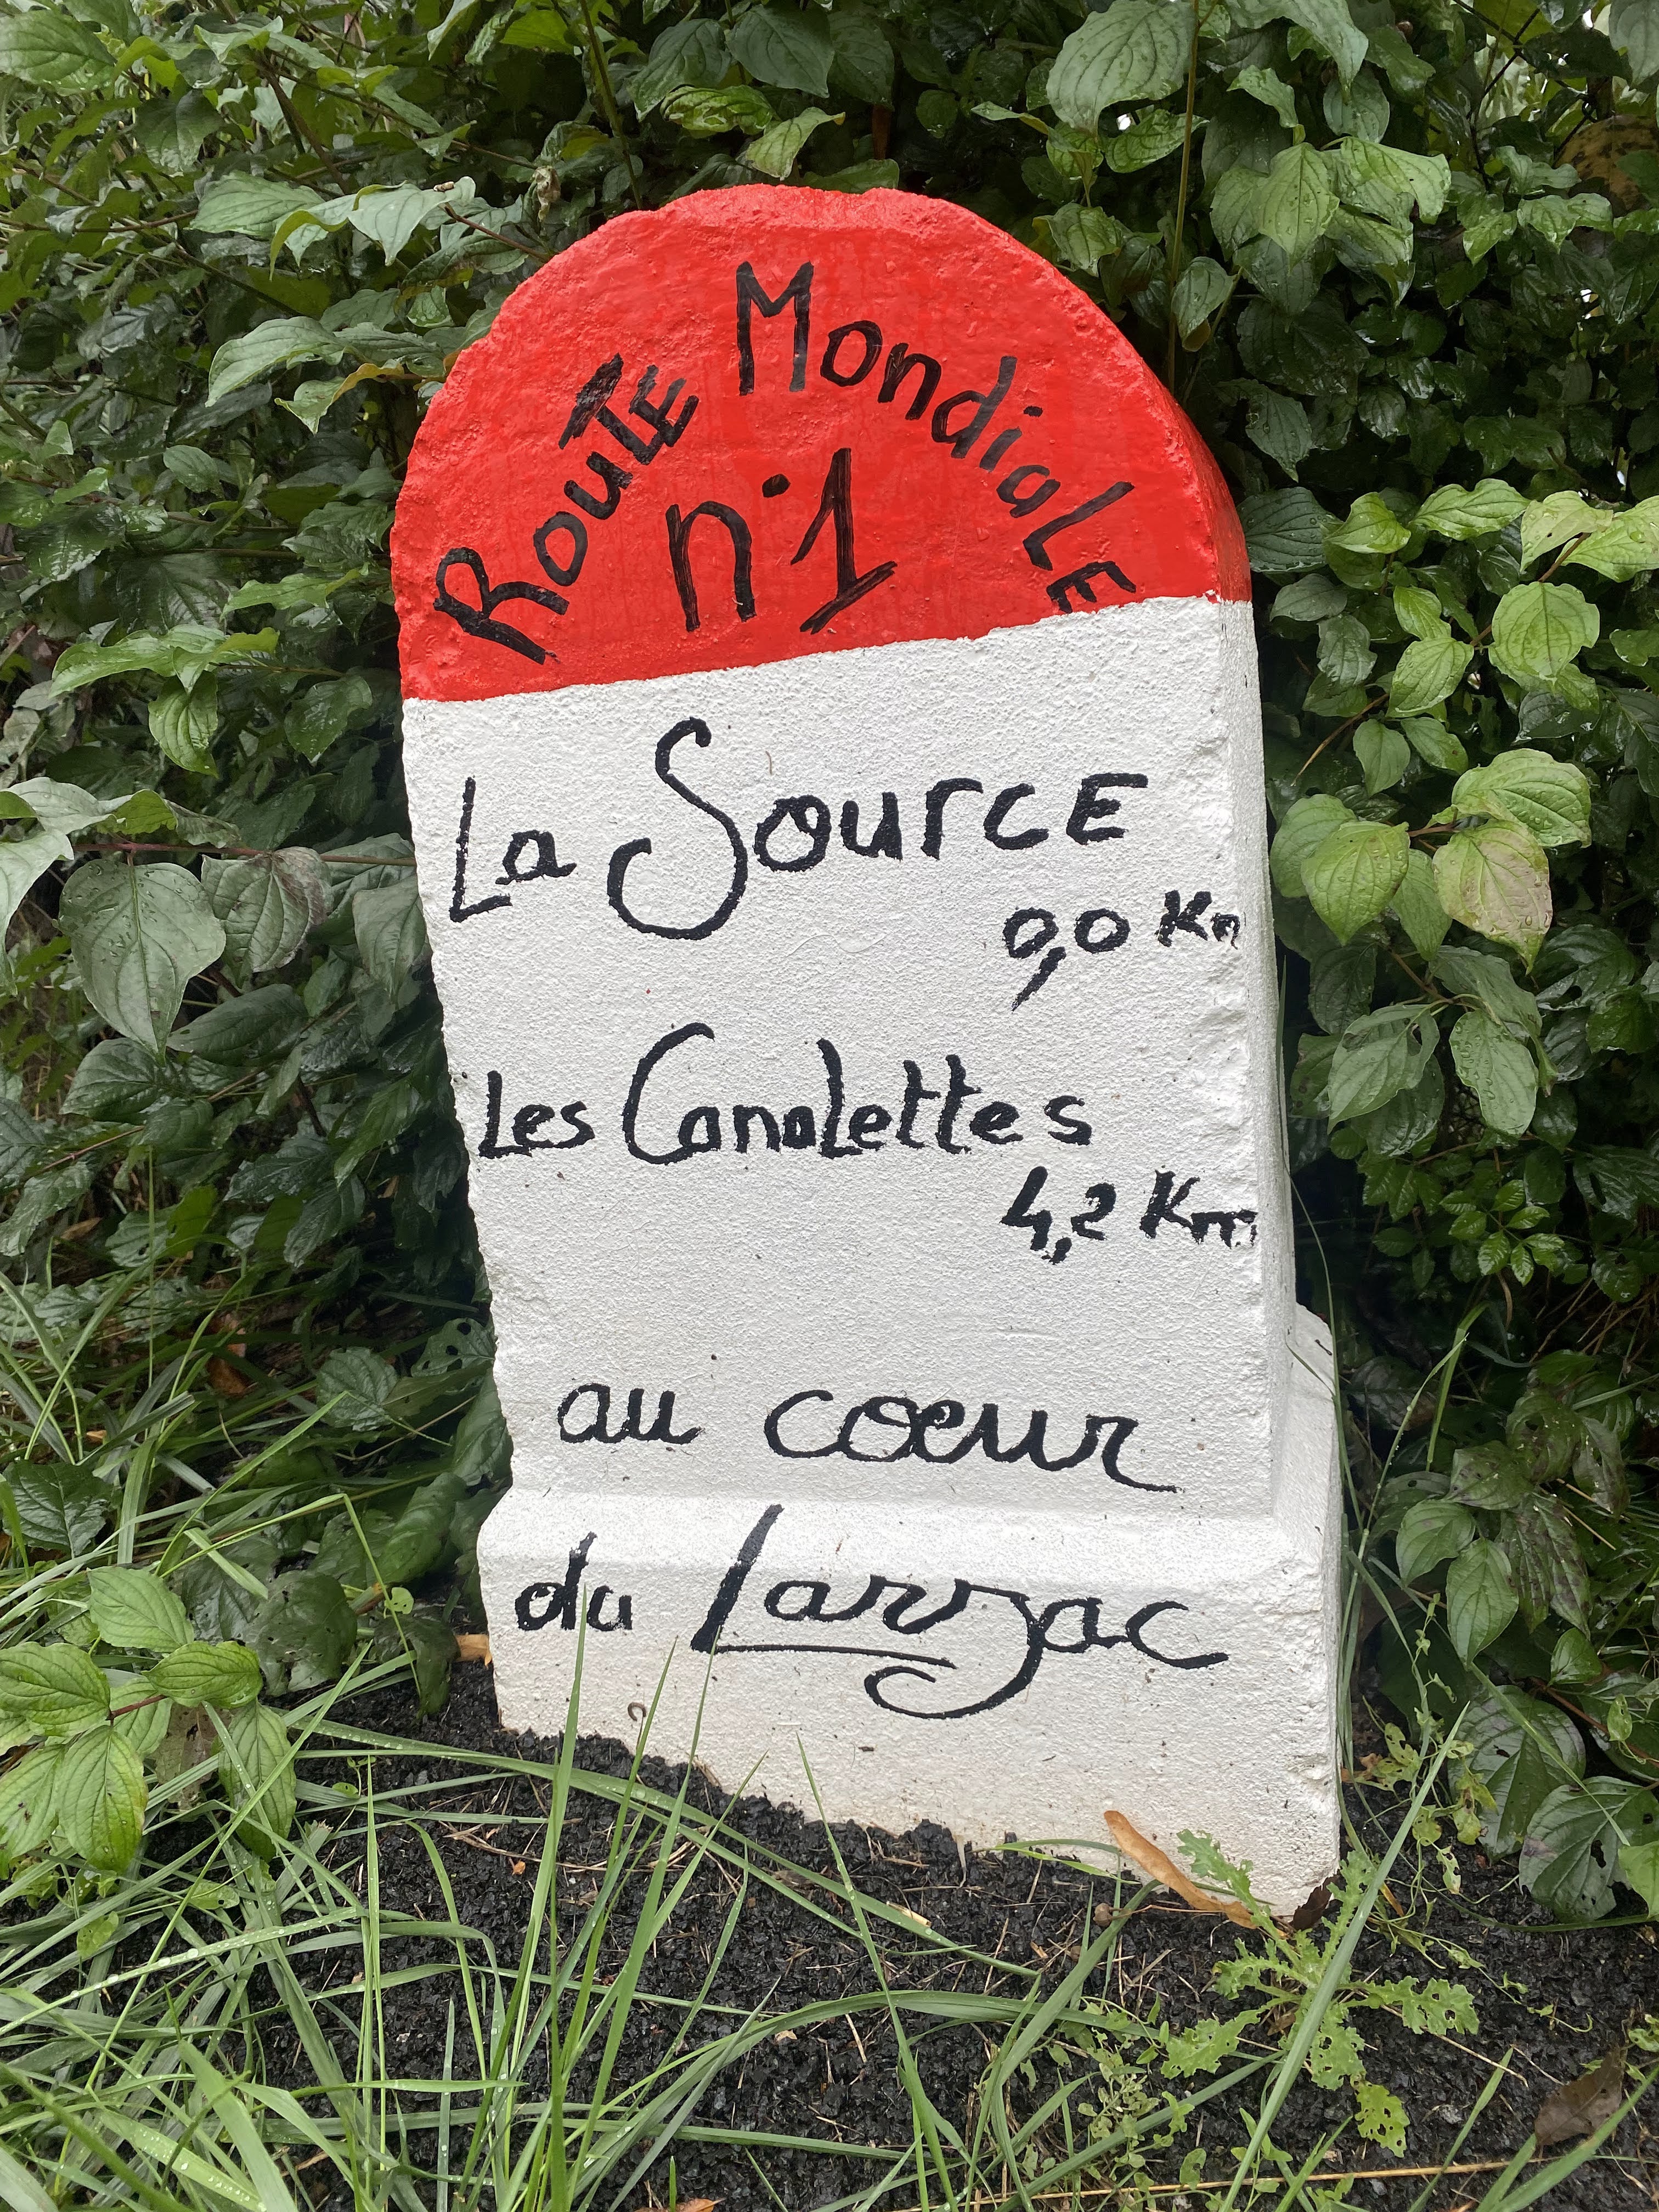 RouTE MondiaLE
n°1
La SourcE
0,0 Km
Les Canalettes
4,2 Km
au cœur
du Larzac